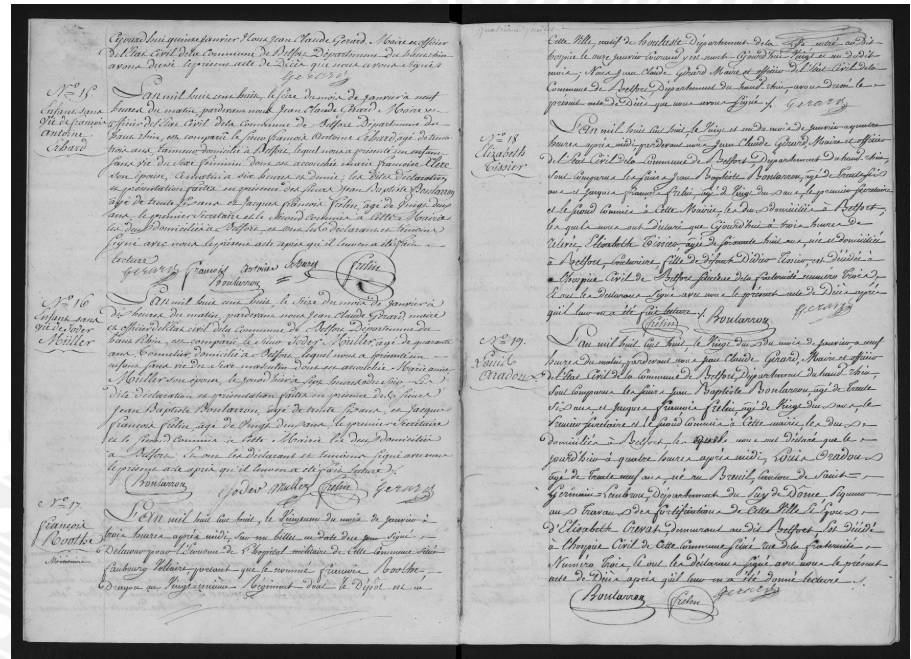 Cejourd'hui quinze janvier Nous Jean Claude Gerard, Maire et officier
de l'Etat Civil de la Commune de Belfort Département du haut rhin
avons dressé le présent acte de Décès que nous avons Signés
Gerard
N.º 15
Enfant sans
vie de françois
antoine
L'an mil huit cent huit, le seize du mois de janvier à neuf
heures du matin, pardevant nous Jean Claude Gerard, Maire et
officier de l'Etat Civil de la Commune de Belfort Département du
haut rhin, est comparu le Sieur francois Antoine agé de trente
trois ans domicilié à Belfort, lequel nous a présenté un enfant
Sans vie du Sexe feminin dont est accouchée marie françoise Clerc
Son épouse, à six heures et demie; les dites déclaration
et présentation faites en présence des Sieurs Jean Baptiste Boularron
agé de trente Six ans et Jacques françois frelin, agé de Vingt deux
ans, le premier Secrétaire et le Second Commis à cette Mairie
les deux domiciliés à Belfort et ont les déclarant et temoins
Signé avec nous le présent acte après qu'il leur en a été fait
lecture
Gerard François antoine frelin
Boularron
N.º 16
Enfant sans
vie de Joder
Müller
L'an mil huit cent huit, le Seize du mois de janvier à
dix heures du matin, pardevant nous Jean Claude Gerard maire
et officier de l'etat civil de la Commune de Belfort Département du
haut Rhin, est comparu le Sieur Joder Müller, agé de quarante
ans domicilié à Belfort lequel nous a présenté un
enfant Sans vie du Sexe masculin dont est accouchée Marie anne
Müller son épouse, le jourd'hier à Six heures du Soir Les
dite déclaration et présentation faites en présence des Sieurs
Jean Baptiste Boularron, agé de trente Six ans, et Jacques
François frelin, agé de Vingt Deux ans, le premier Secrétaire
et le Second Commis à cette Mairie les deux Domiciliés
à Belfort et ont les déclarant et temoins Signé avec nous
le présent acte après qu'il leur en a été fait lecture
Boularron Joder Muller frelin Gerard
N.º 17.
François
Rooche
Militaire
L'an mil huit cent huit, le Vingt un du mois de Janvier à
trois heures après midi, Sur un billet en date dudit jour Signé
Delacour pour l'Econome de l'hopital militaire de cette Commune Situé
faubourg portant que le nommé françois Rooche
Dragon au Vingt Regiment dont le Dépôt est en
cette Ville, natif de Département de la est mort audit
hospice le onze janvier courant Cejourd'hui Vingt et un dudit
mois, Nous Jean Claude Gérard Maire et officier de l'Etat Civil de la
Commune de Belfort Département du haut rhin avons dressé le
présent acte de Décès que nous avons Signé. Gerard
N.º 18
Elizabeth
Tissier
L'an mil huit Cent huit le Vingt et un du mois de Janvier à quatre
heures après midi pardevant nous Jean Claude Gerard Maire et officier
de l'Etat Civil de la Commune de Belfort, Département du haut rhin,
Sont comparus les Sieurs Jean Baptiste Boularron, agé de trente Six
ans et Jacques françois frelin, agé de Vingt deux ans le premier Secrétaire
et le Second Commis à cette Mairie, les deux Domiciliés à Belfort,
lesquels nous ont déclaré que Cejourd'hui à trois heures de
relevée, Elizabeth Tissier agée de soixante huit ans née et domiciliée
à Belfort, Couturière fille de défunt Didier Tissier est décédée à
l'hospice Civil de Belfort Situé rue de la fraternité numéro trois,
et ont les déclarans Signé avec nous le présent acte de Décès après
qu'il leur en a été fait lecture. Gerard
frelin Boularron
N.º 19.
Louis
Oradou
L'an mil huit Cent huit le Vingt du mois de Janvier à neuf
heures du matin, pardevant nous Jean Claude Gérard, Maire et officier
de l'Etat Civil de la Commune de Belfort, Département du haut rhin,
Sont Comparus les Sieurs Jean Baptiste Boularron, agé de trente
Six ans, et Jacques François frelin agé de Vingt Deux ans, le
Premier Secrétaire et le Second Commis à Cette mairie les deux
domiciliés à Belfort, lesquels nous ont déclaré que le
jourd'hier à quatre heures après midi, Louis Oradou
agé de trente neuf ans, né au Breuil, Canton de Saint
Germain Lembron, Département du Puy de Dôme
aux travaux des fortifications de Cette Ville
d'Elizabeth demeurant audit Belfort est décédé
à l'hospice Civil de Cette Commune Situé rue de la fraternité
Numéro trois, et ont les déclarans Signé avec nous le présent
acte de Décès après qu'il leur en a été donné lecture.
Boularron frelin Gerard